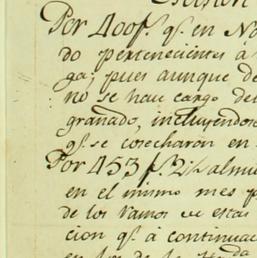 Por 400f.s q.e en No
do pertenecientes á
ga; pues aunque de
no se hau cargo de
granado, incluyendose
q.e se cosecharon en
Por 453 f.s 2½ almu
en el mismo mes p
de los Ramos de estas
cion q.e á continuac